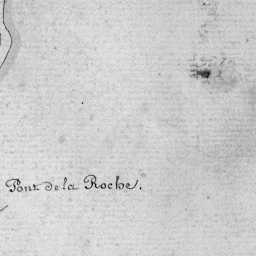 Pont de la Roche.